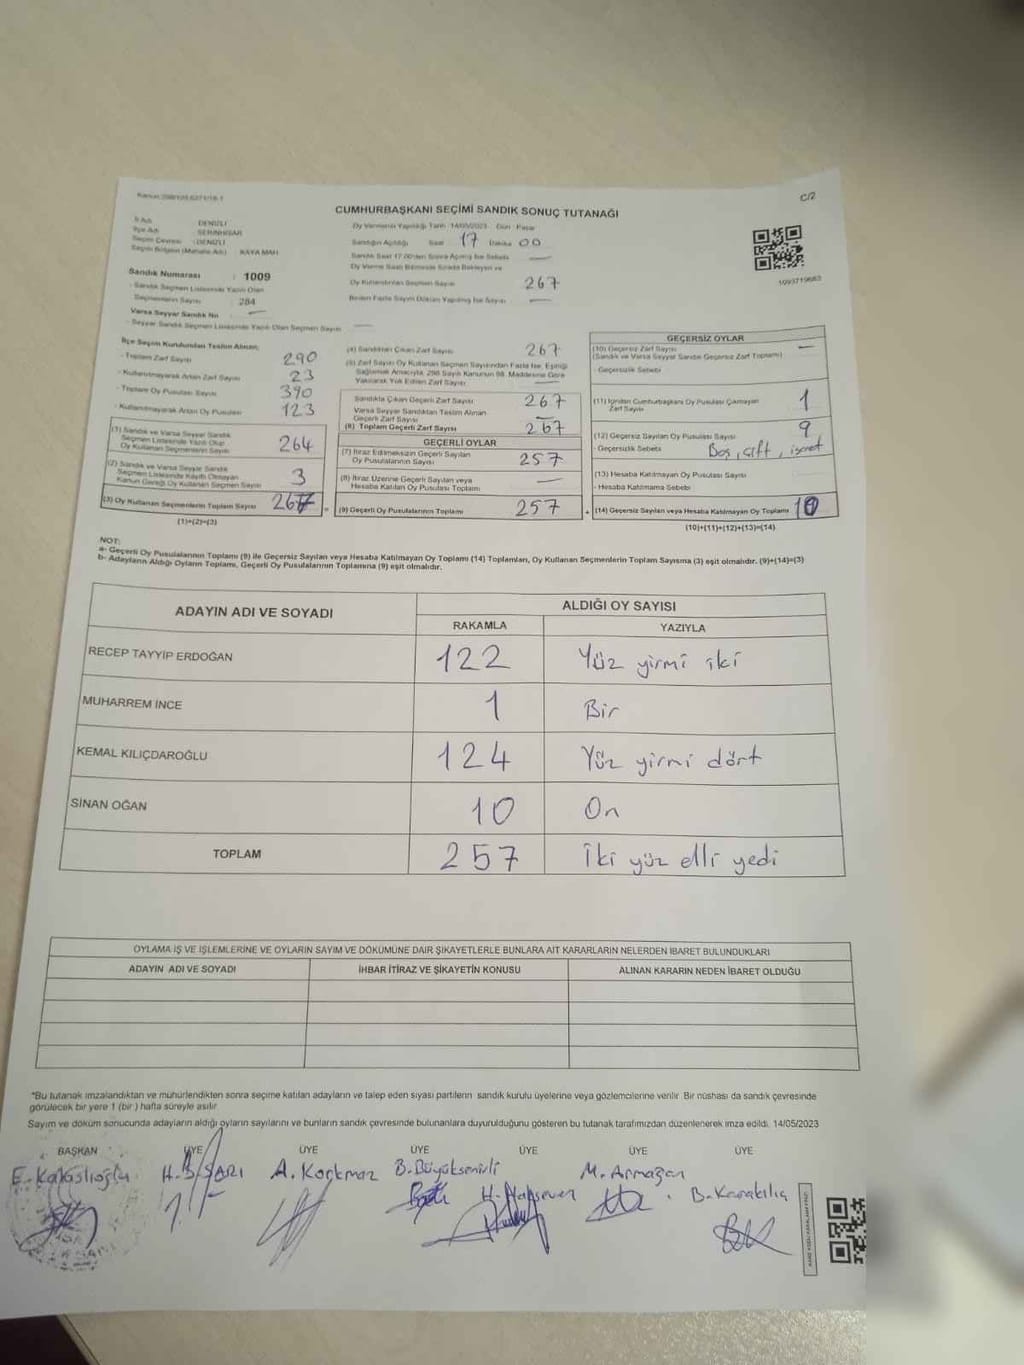 C/2
CUMHURBAŞKANI SEÇİMİ SANDIK SONUÇ TUTANAĞI
İli Adı DENİZLİ
İlçe Adı SERİNHİSAR
Seçim Çevresi : DENİZLİ
Seçim Bölgesi (Mahalle Adı) : KAYA MAH.
Oy Vermenin Yapıldığı Tarih :14/05/2023 Gün : Pazar
Sandığın Açıldığı Saat 17 Dakika 00
Oy Kullanan Seçmen Sayısı 267
1093719683
Sandık Numarası : 1009
Sandık Seçmen Listesinde Yazılı Olan
Seçmenlerin Sayısı : 284
Varsa Seyyar Sandık No : —
- Seyyar Sandık Seçmen Listesinde Yazılı Olan Seçmen Sayısı : —
İlçe Seçim Kurulundan Teslim Alınan;
- Toplam Zarf Sayısı 290
- Kullanılmayarak Artan Zarf Sayısı 23
- Toplam Oy Pusulası Sayısı 390
- Kullanılmayarak Artan Oy Pusulası 123
(1) Sandık ve Varsa Seyyar Sandık
Seçmen Listesinde Yazılı Olup
Oy Kullanan Seçmenlerin Sayısı 264
(2) Sandık ve Varsa Seyyar Sandık
Seçmen Listesinde Kayıtlı Olmayan
Kanun Gereği Oy Kullanan Seçmen Sayısı 3
(3) Oy Kullanan Seçmenlerin Toplam Sayısı 267
(1)+(2)=(3)
(4) Sandıktan Çıkan Zarf Sayısı 267
(5) Zarf Sayısı Oy Kullanan Seçmen Sayısından Fazla İse, Eşitliği
Sağlamak Amacıyla, 298 Sayılı Kanunun 98. Maddesine Göre
Yakılarak Yok Edilen Zarf Sayısı —
Sandıkta Çıkan Geçerli Zarf Sayısı 267
Varsa Seyyar Sandıktan Teslim Alınan
Geçerli Zarf Sayısı —
(6) Toplam Geçerli Zarf Sayısı 267
GEÇERLİ OYLAR
(7) İtiraz Edilmeksizin Geçerli Sayılan
Oy Pusulasının Sayısı 257
(8) İtiraz Üzerine Geçerli Sayılan veya
Hesaba Katılan Oy Pusulası Toplamı —
= (9) Geçerli Oy Pusulalarının Toplamı 257
GEÇERSİZ OYLAR
(10) Geçersiz Zarf Sayısı —
(Sandık ve Varsa Seyyar Sandık Geçersiz Zarf Toplamı)
- Geçersizlik Sebebi
(11) İçinden Cumhurbaşkanı Oy Pusulası Çıkmayan
Zarf Sayısı 1
(12) Geçersiz Sayılan Oy Pusulası Sayısı 9
- Geçersizlik Sebebi Boş, çift, işaret
(13) Hesaba Katılmayan Oy Pusulası Sayısı
- Hesaba Katılmama Sebebi
+ (14) Geçersiz Sayılan veya Hesaba Katılmayan Oy Toplamı 10
(10)+(11)+(12)+(13)=(14)
NOT:
a- Geçerli Oy Pusulalarının Toplamı (9) ile Geçersiz Sayılan veya Hesaba Katılmayan Oy Toplamı (14) Toplamları, Oy Kullanan Seçmenlerin Toplam Sayısına (3) eşit olmalıdır. (9)+(14)=(3)
b- Adayların Aldığı Oyların Toplamı, Geçerli Oy Pusulalarının Toplamına (9) eşit olmalıdır.
ADAYIN ADI VE SOYADI ALDIĞI OY SAYISI
RAKAMLA YAZIYLA
RECEP TAYYİP ERDOĞAN 122 Yüz yirmi iki
MUHARREM İNCE 1 Bir
KEMAL KILIÇDAROĞLU 124 Yüz yirmi dört
SİNAN OĞAN 10 On
TOPLAM 257 İki yüz elli yedi
OYLAMA İŞ VE İŞLEMLERİNE VE OYLARIN SAYIM VE DÖKÜMÜNE DAİR ŞİKAYETLERLE BUNLARA AİT KARARLARIN NELERDEN İBARET BULUNDUKLARI
ADAYIN ADI VE SOYADI İHBAR İTİRAZ VE ŞİKAYETİN KONUSU ALINAN KARARIN NEDEN İBARET OLDUĞU
*Bu tutanak imzalandıktan ve mühürlendikten sonra seçime katılan adayların ve talep eden siyasi partilerin sandık kurulu üyelerine veya gözlemcilerine verilir. Bir nüshası da sandık çevresinde
görülecek bir yere 1 (bir) hafta süreyle asılır.
Sayım ve döküm sonucunda adayların aldığı oyların sayılarını ve bunların sandık çevresinde bulunanlara duyurulduğunu gösteren bu tutanak tarafımızdan düzenlenerek imza edildi. 14/05/2023
BAŞKAN ÜYE ÜYE ÜYE ÜYE ÜYE ÜYE
A. Korkmaz M. Armağan
B. Karakılıç